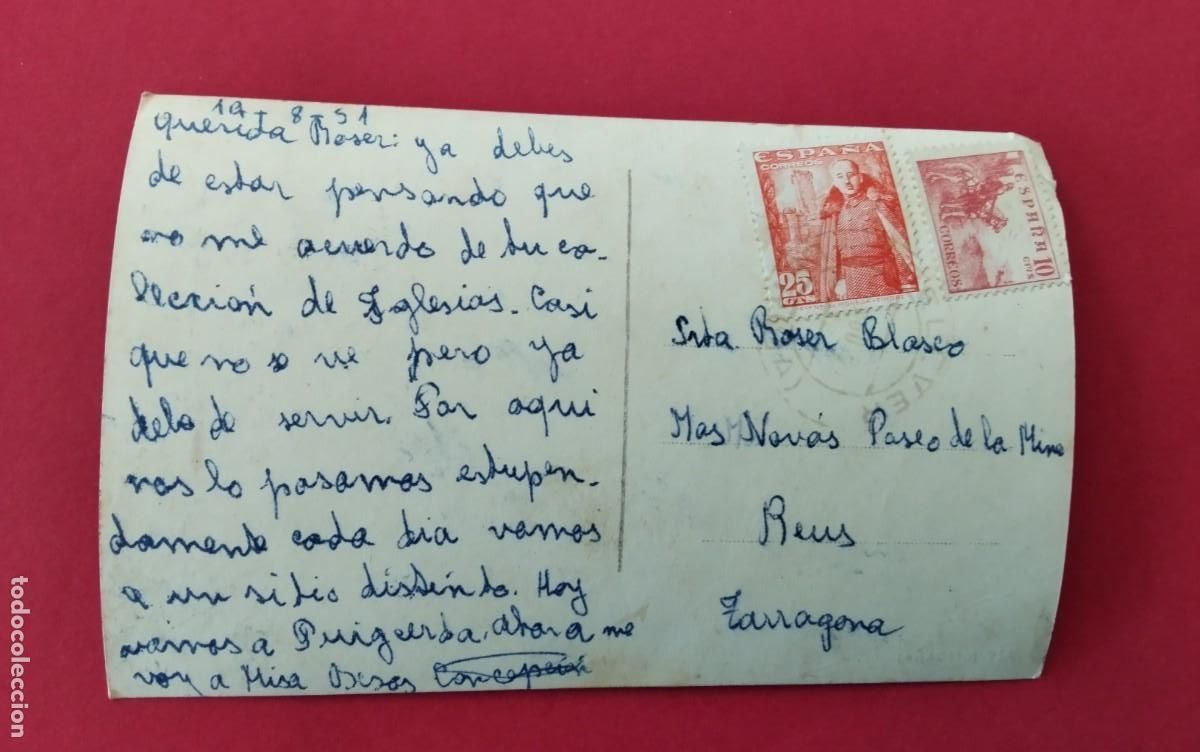 19-8-51
querida Roser: ya debes
de estar pensando que
no me acuerdo de tu co-
leccion de Iglesias. Casi
que no se ve pero ya
debe de servir. Por aqui
nos lo pasamos estupen-
damente cada dia vamos
a un sitio distinto. Hoy
vamos a Puigcerda. ahora me
voy a Misa Besos Concepción
ESPAÑA
CORREOS
25
CTS
ESPAÑA
CORREOS
10
CTS
Srta Roser Blasco
Mas Novás Paseo de la Mina
Reus
Tarragona
todocoleccion